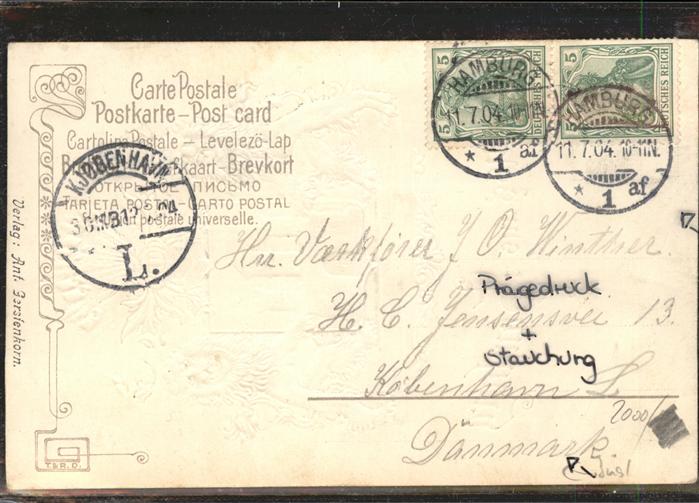 Carte Postale
Postkarte – Post card
Cartolina Postale – Levelező-Lap
Brevkort
ОТКРЫТОЕ ПИСЬМО
TARJETA POSTAL – CARTO POSTAL
postale universelle.
5 5
DEUTSCHES REICH
DEUTSCHES REICH
HAMBURG
11.7.04. 10-11N.
* 1 af
HAMBURG
11.7.04. 10-11N.
* 1 af
KJØBENHAVN
L.
Verlag: Ant. Gerstenkorn.
Hrr. Værkfører J. O. Winther
Prägedruck
H. C. Jensensvei 13.
+
Stauchung
København L.
2000/
Danmark
T.S.R.D.